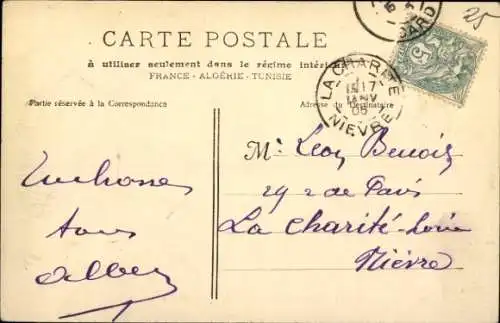 25
GARD
CARTE POSTALE
à utiliser seulement dans le régime intérieur
FRANCE - ALGÉRIE - TUNISIE
LA CHARITÉ
17
JANV
05
NIEVRE
5
Partie réservée à la Correspondance
Adresse du Destinataire
Mr Léon Benoit
29 r de Paris
La Charité-Loire
Nièvre
tous
Albert